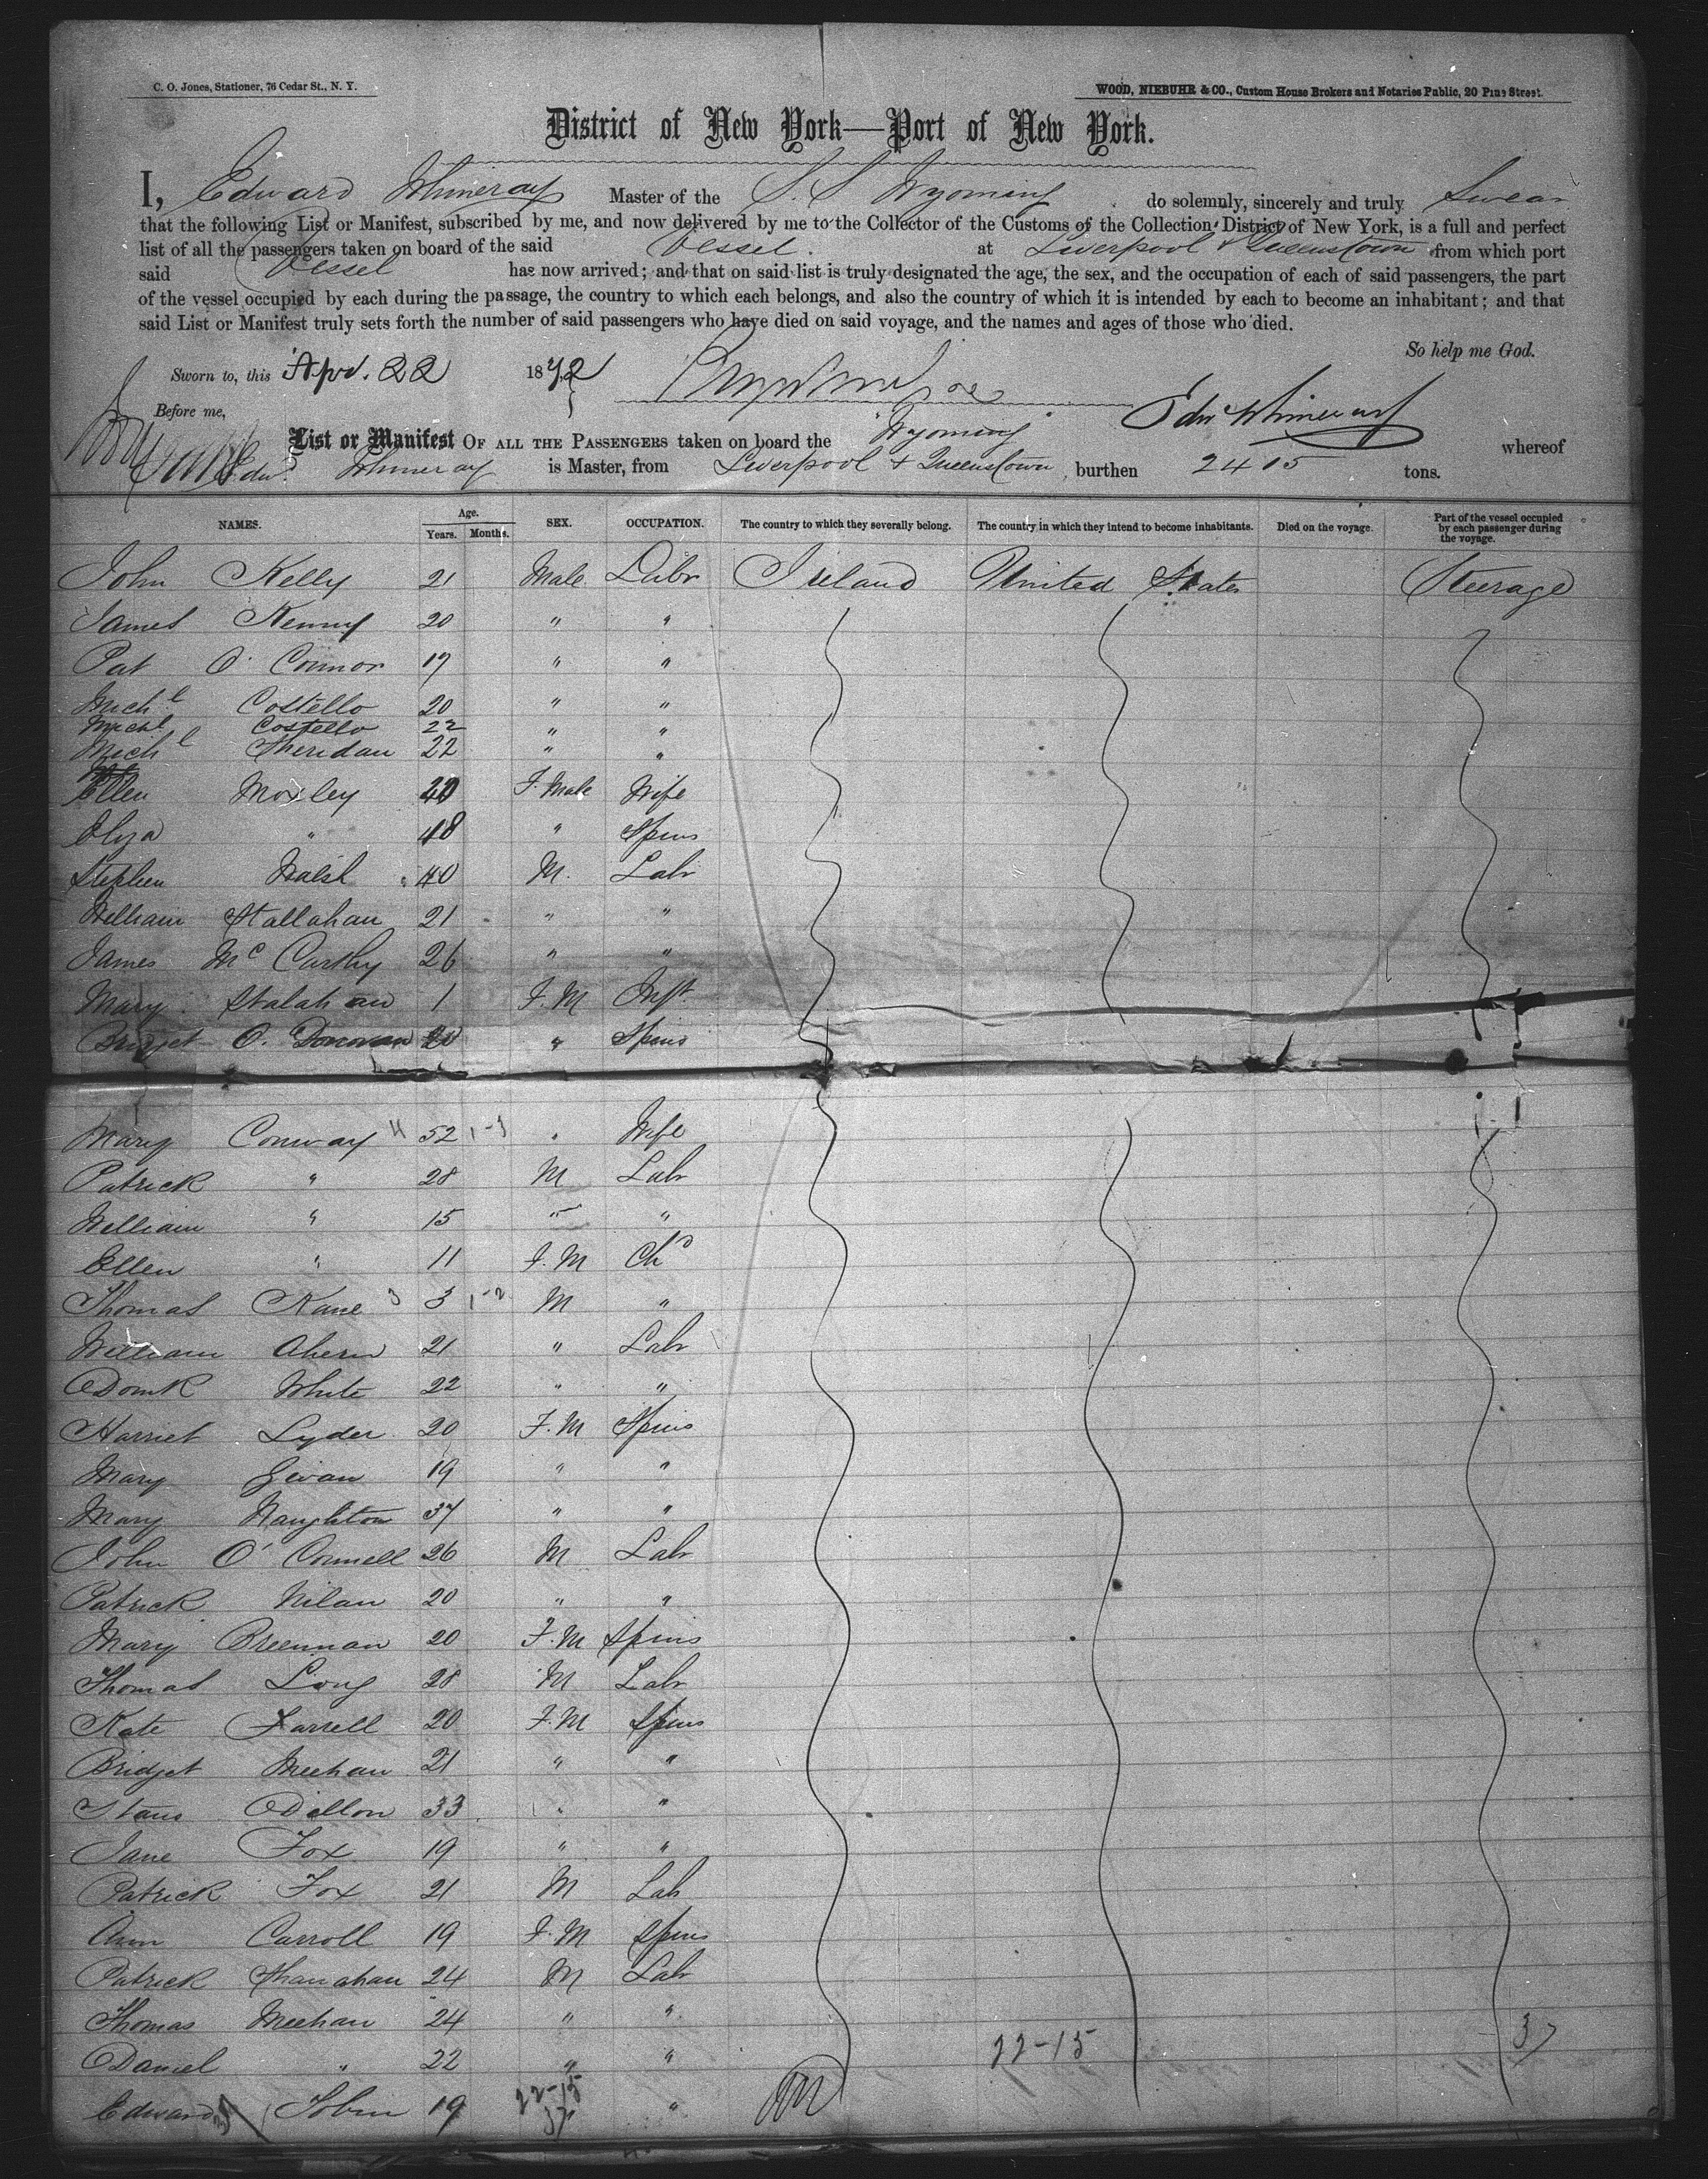 C. O. Jones, Stationer, 76 Cedar St., N. Y.
WOOD, NIEBUHR & CO., Custom House Brokers and Notaries Public, 20 Pine Street.
District of New York—Port of New York.
I, Edward Whineray Master of the S. S. Wyoming do solemnly, sincerely and truly Swear
that the following List or Manifest, subscribed by me, and now delivered by me to the Collector of the Customs of the Collection District of New York, is a full and perfect
list of all the passengers taken on board of the said Vessel. at Liverpool & Queenstown from which port
said Vessel has now arrived; and that on said list is truly designated the age, the sex, and the occupation of each of said passengers, the part
of the vessel occupied by each during the passage, the country to which each belongs, and also the country of which it is intended by each to become an inhabitant; and that
said List or Manifest truly sets forth the number of said passengers who have died on said voyage, and the names and ages of those who died.
So help me God.
Sworn to, this Apr. 22 1872
Before me,
Edw Whineray
List or Manifest OF ALL THE PASSENGERS taken on board the Wyoming whereof
Edw. Whineray is Master, from Liverpool & Queenstown, burthen 2415 tons.
NAMES. Age. Years. Months. SEX. OCCUPATION. The country to which they severally belong. The country in which they intend to become inhabitants. Died on the voyage. Part of the vessel occupied by each passenger during the voyage.
John Kelly 21 Male Labr Ireland United States Steerage
James Kenny 20 " "
Pat O'Connor 19 " "
Michl Costello 20 " "
Michl Costello 22 " "
Michl Sheridan 22 " "
Ellen Moxley 40 F. Male Wife
Eliza " 18 " Spins
Stephen Walsh 40 M. Labr
William Stallahan 21 " "
James McCarthy 26 " "
Mary Stalahan 1 F. M Inft
Bridget O. Donovan 20 " Spins
Mary Conway 4 52 1-3 " Wife
Patrick " 28 M Labr
William " 15 " "
Ellen " 11 F. M Chd
Thomas Kane 3 3 1-2 M "
William Ahern 21 " Labr
Domk White 22 " "
Harriet Lyder 20 F. M Spins
Mary Givan 19 " "
Mary Naughton 37 " "
John O'Connell 26 M Labr
Patrick Nilan 20 " "
Mary Breennan 20 F. M Spins
Thomas Long 28 M Labr
Kate Farrell 20 F. M Spins
Bridget Meehan 21 " "
Stans Dillon 33 " "
Jane Fox 19 " "
Patrick Fox 21 M Lab
Ann Carroll 19 F. M Spins
Patrick Shanahan 24 M Labr
Thomas Meehan 24 " "
Daniel " 22 " "
22-15 37
Edward Tobin 19 " "
22-15
37